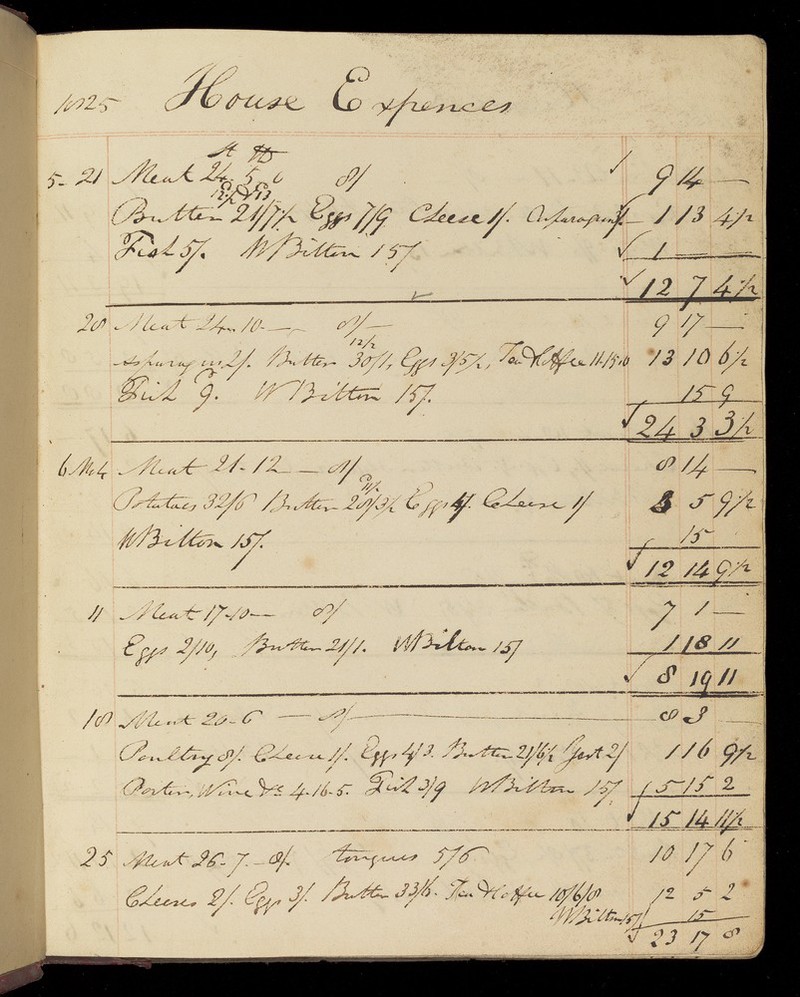 1825 House Expences
St lb
5-21 Meat 24 5 0 8/ 9 14 —
Butter 21/7½ Eggs 7/9 Cheese 1/. Asparagus 3/- 1 13 4½
Fish 5/. W Bilton 15/ 1 — —
12 7 4½
28 Meat 24-10- 8/- 9 17 —
12½
Asparagus 2/. Butter 30/1, Eggs 3/5½, Tea & Coffee 11-15-0 13 10 6½
Fish 9. W Bilton 15/. 15 9
24 3 3½
6 Mo 4 Meat 21-12 — 8/ 8 14 —
Potatoes 32/6 Butter 28/3½ Eggs 4/. Cheese 1/ 3 5 9½
W Bilton 15/. 15
12 14 9½
11 Meat 17-10— 8/ 7 1 —
Eggs 2/10, Butter 21/1. W Bilton 15/ 1 18 11
8 19 11
18 Meat 20-6 — 8/ 8 3 —
Poultry 8/. Cheese 1/. Eggs 4/3. Butter 21/6½ Yest 2/ 1 16 9½
Porter, Wine &c 4-16-5. Fish 3/9 W Bilton 15/. 5 15 2
15 14 11½
25 Meat 26-7-8/. tongues 5/6 10 17 6
Cheeses 2/. Eggs 3/. Butter 33/6. Tea & Coffee 10/6/8 12 5 2
W Bilton 15/ 15
23 17 8